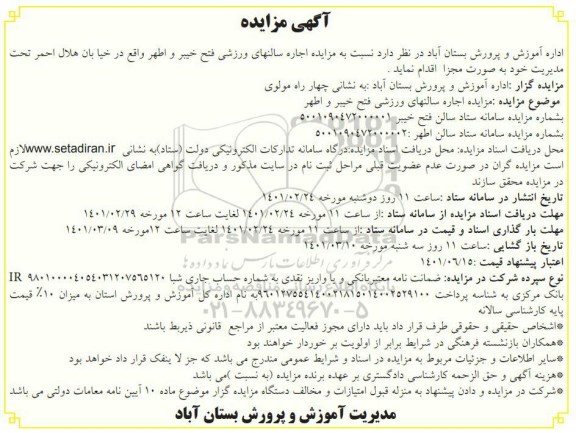 آگهی مزایده
اداره آموزش و پرورش بستان آباد در نظر دارد نسبت به مزایده اجاره سالنهای ورزشی فتح خیبر و اطهر واقع در خیا بان هلال احمر تحت
مدیریت خود به صورت مجزا اقدام نماید .
مزایده گزار :اداره آموزش و پرورش بستان آباد :به نشانی چهار راه مولوی
موضوع مزایده :مزایده اجاره سالنهای ورزشی فتح خیبر و اطهر
بشماره مزایده سامانه ستاد سالن فتح خیبر ۵۰۰۱۰۹۰۴۷۲۰۰۰۰۰۱
بشماره مزایده سامانه ستاد سالن اطهر :۵۰۰۱۰۹۰۴۷۲۰۰۰۰۰۲
محل دریافت اسناد مزایده: محل دریافت اسناد مزایده:درگاه سامانه تدارکات الکترونیکی دولت (ستاد)به نشانی www.setadiran.irلازم
است مزایده گران در صورت عدم عضویت قبلی مراحل ثبت نام در سایت مذکور و دریافت گواهی امضای الکترونیکی را جهت شرکت
در مزایده محقق سازند
تاریخ انتشار در سامانه ستاد :ساعت ۱۱ روز دوشنبه مورخه ۱۴۰۱/۰۲/۲۴
مهلت دریافت اسناد مزایده از سامانه ستاد :از ساعت ۱۱ مورخه ۱۴۰۱/۰۲/۲۴ لغایت ساعت ۱۲ مورخه ۱۴۰۱/۰۲/۲۹
مهلت بار گذاری اسناد و قیمت در سامانه ستاد :از ساعت ۱۱ مورخه ۱۴۰۱/۰۲/۲۴ لغایت ساعت ۱۲مورخه ۱۴۰۱/۰۳/۰۹
تاریخ باز گشایی :ساعت ۱۱ روز سه شنبه مورخه ۱۴۰۱/۰۳/۱۰
اعتبار پیشنهاد قیمت :۱۴۰۱/۰۶/۱۵
نوع سپرده شرکت در مزایده: ضمانت نامه معتبربانکی و یا واریز نقدی به شماره حساب جاری شبا IR ۹۸۰۱۰۰۰۰۴۰۵۴۰۳۱۲۰۷۵۶۵۱۲۰
بانک مرکزی به شناسه پرداخت ۹۶۰۱۲۷۵۵۴۱۴۰۰۲۱۸۱۵۰۱۴۰۰۲۵۲۹۱۰۰به نام اداره کل آموزش و پرورش استان به میزان ۱۰٪ قیمت
پایه کارشناسی سالانه
*اشخاص حقیقی و حقوقی طرف قرار داد باید دارای مجوز فعالیت معتبر از مراجع قانونی ذیربط باشند
*همکاران بازنشسته فرهنگی در شرایط برابر از اولویت بر خوردار خواهند بود
*سایر اطلاعات و جزئیات مربوط به مزایده در اسناد و شرایط عمومی مندرج می باشد که جز لا ینفک قرار داد خواهد بود
*هزینه آگهی و حق الزحمه کارشناسی دادگستری بر عهده برنده مزایده (به نسبت )می باشد
*شرکت در مزایده و دادن پیشنهاد به منزله قبول امتیازات و مخالف دستگاه مزایده گزار موضوع ماده ۱۰ آیین نامه معامات دولتی می باشد
مدیریت آموزش و پرورش بستان آباد
ParsNamadData
۰۲۱-۸۸۳۴۹۶۷۰-۵